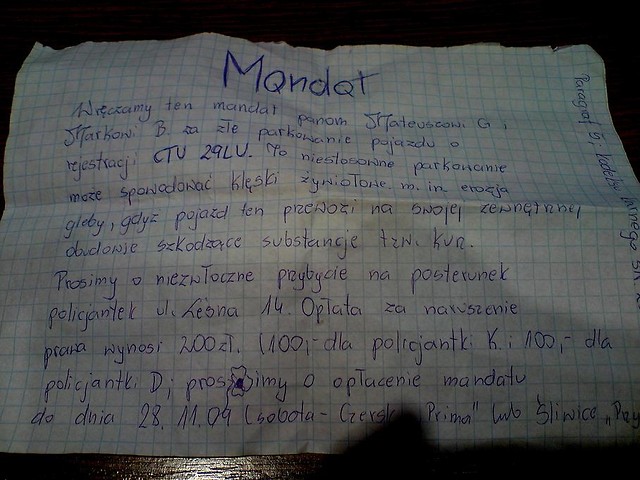 Mandat
Wręczamy ten mandat panom Mateuszowi G i
Markowi B. za złe parkowanie pojazdu o
rejestracji CTU 29LU. To niestosowne parkowanie
może spowodować klęski żywiołowe m. in. erozja
gleby, gdyż pojazd ten przewozi na swojej zewnętrznej
obudowie szkodzące substancje tzw. kurz.
Prosimy o niezwłoczne przybycie na posterunek
policjantek ul. Leśna 14. Opłata za naruszenie
prawa wynosi 200zł. (100,- dla policjantki K. i 100,- dla
policjantki D; prosimy o opłacenie mandatu
do dnia 28.11.09 (sobota - Czersk "Prima" lub Śliwice
Paragraf 5;